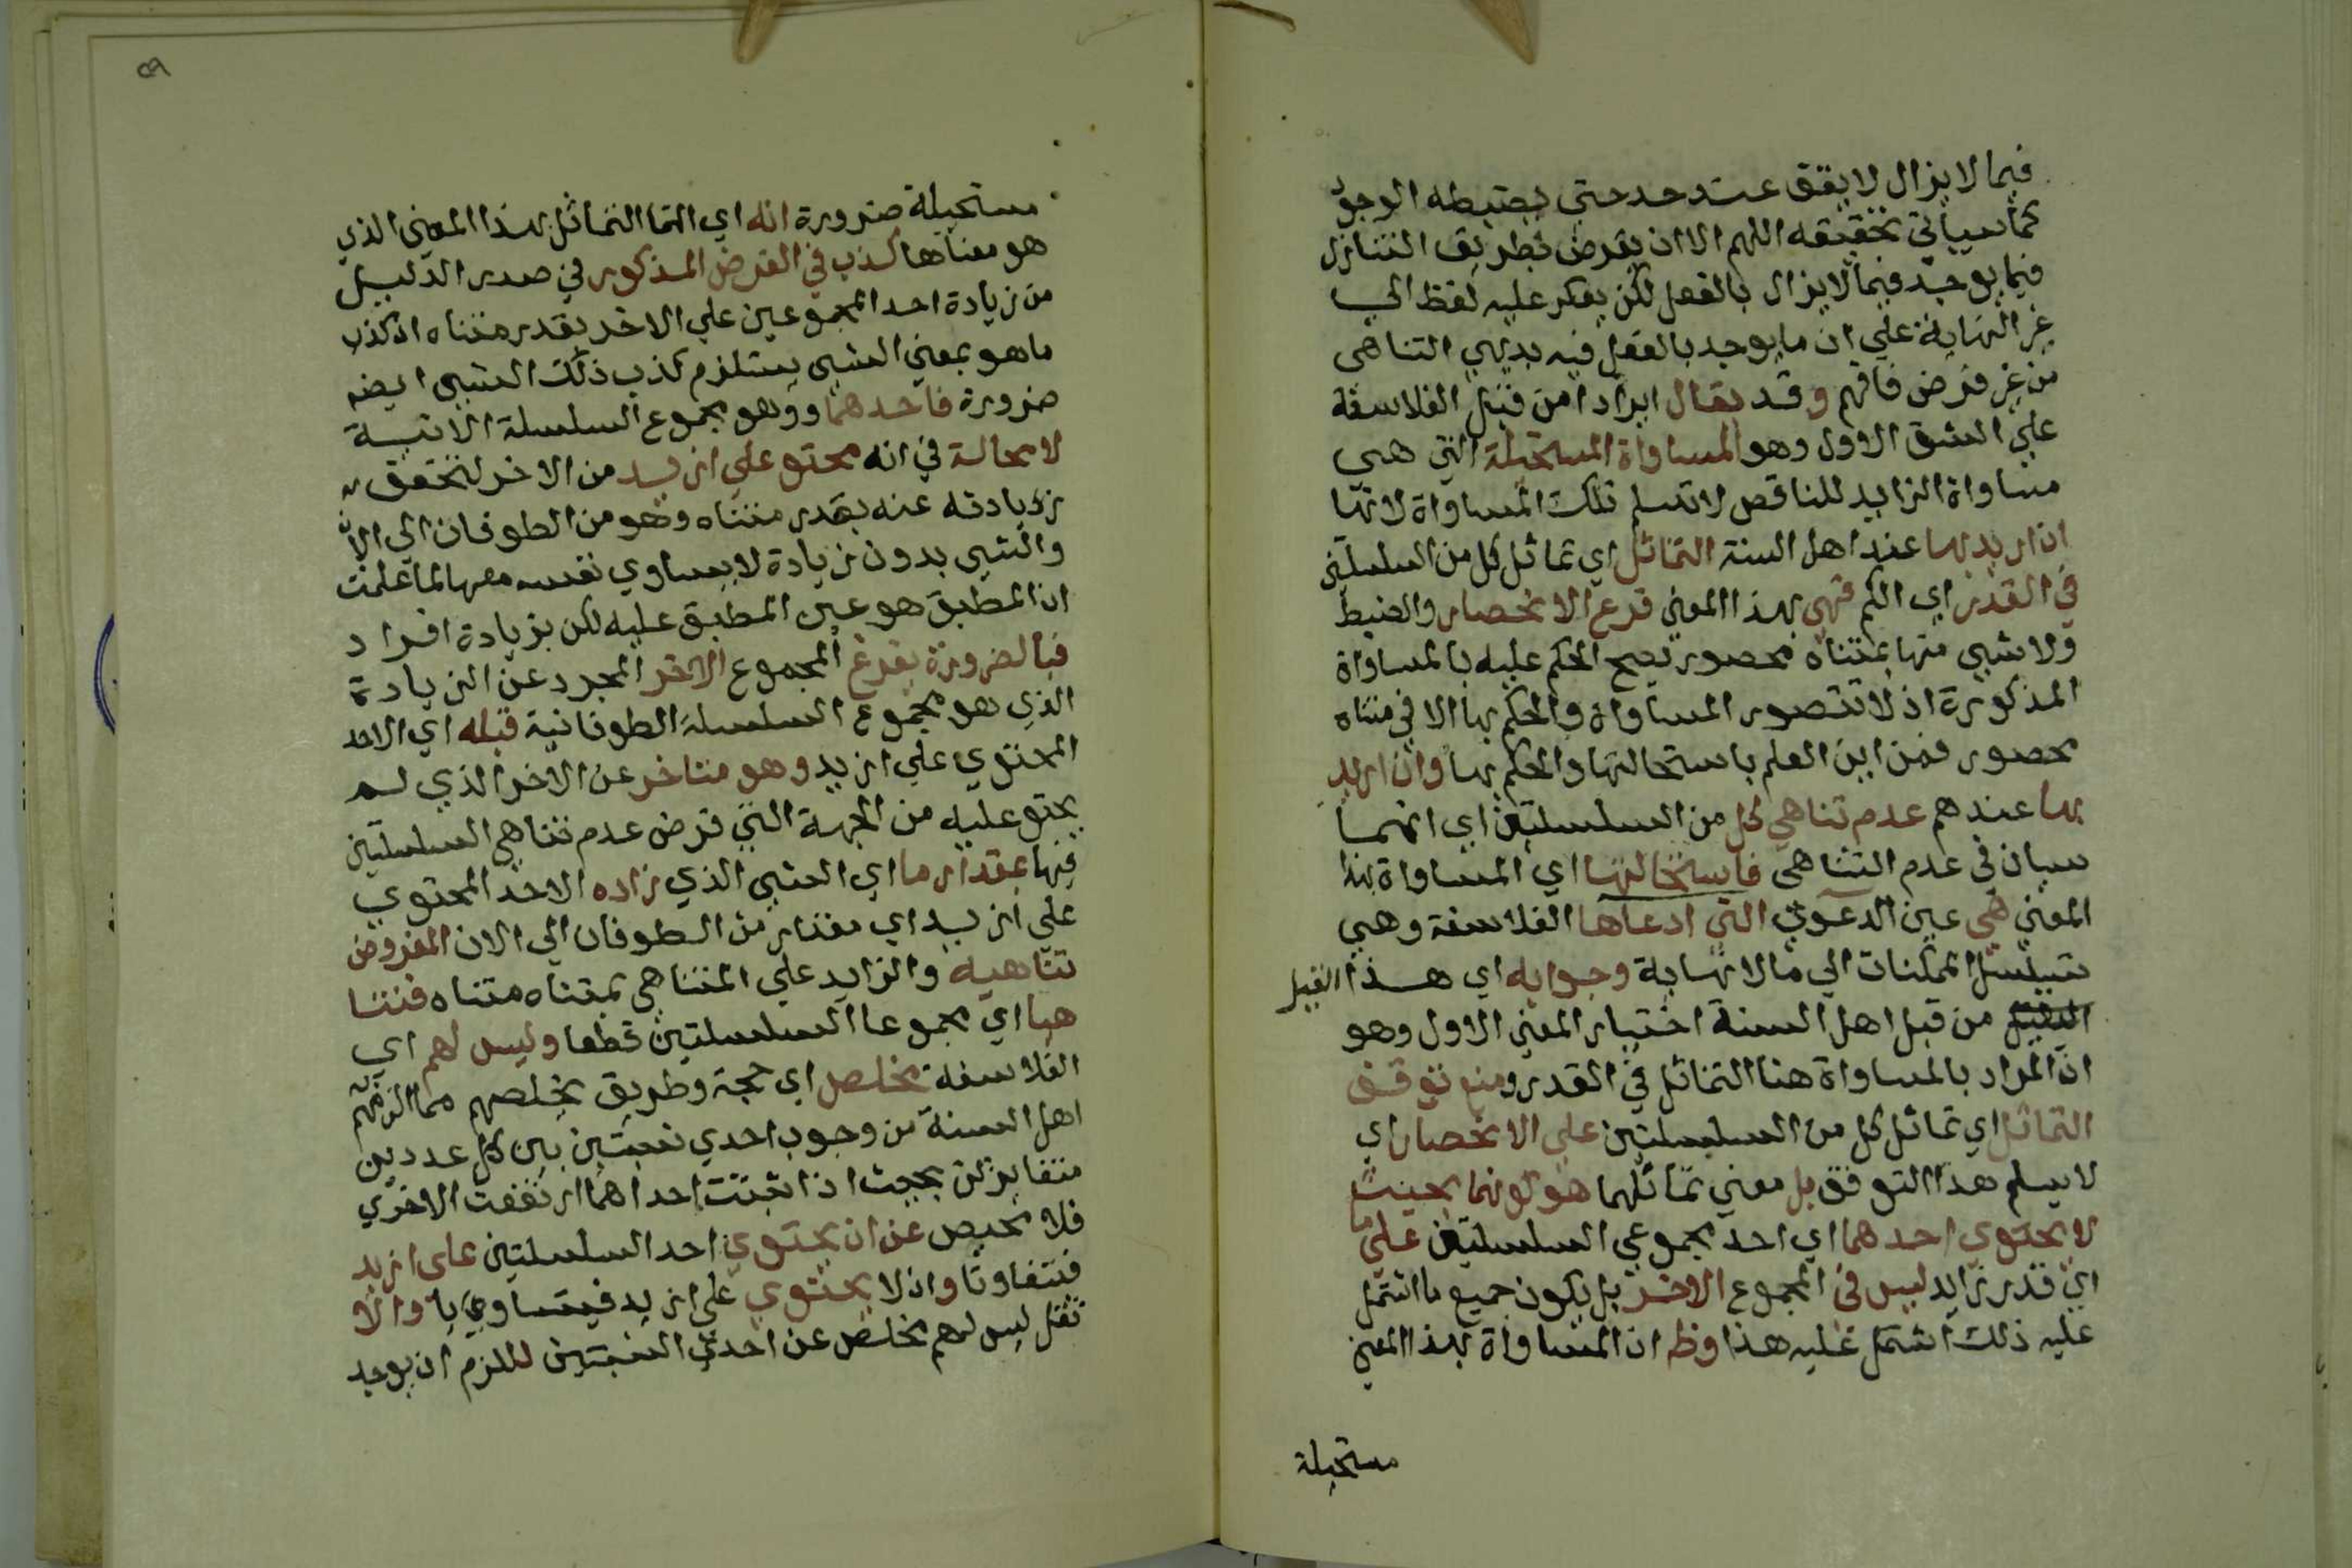 فيما لا يزال لا يقف عند حد حتي يضبطه الوجود
كما سيأتي تحقيقه اللهم الا ان يفرض بطريق التنازل
فيما يوجد فيما لا يزال بالفعل لكن يعكر عليه لفظ الي
غير النهاية علي ان ما يوجد بالفعل فيه بديهي التناهى
من غير فرض فافهم وقد يقال ايرادا من قبل الفلاسفة
علي الشق الاول وهو المساواة المستحيلة التي هي
مساواة الزايد للناقص لا تسلم تلك المساواة لانها
ان اريد بها عند اهل السنة التماثل اي تماثل كل من السلسلتين
في القدر اي الكم فهي بهذا المعني فرع الانحصار والضبط
ولا شيي منها بمتناه محصور يصح الحكم عليه بالمساواة
المذكورة اذ لا تتصور المساواة والحكم بها الا في متناه
محصور فمن اين العلم باستحالتها والحكم بها وان اريد
بها عندهم عدم تناهي كل من السلسلتين اي انهما
سيان في عدم التناهى فاستحالتها اي المساواة بهذا
المعني هي عين الدعوي التي ادعاها الفلاسفة وهي
تسلسل الممكنات الي ما لا نهاية وجوابه اي هذا القيل
من قبل اهل السنة اختيار المعني الاول وهو
ان المراد بالمساواة هنا التماثل في القدر ومنع توقف
التماثل اي تماثل كل من السلسلتين علي الانحصار اي
لا يسلم هذا التوقف بل معني تماثلهما هو كونهما بحيث
لا يحتوي احدهما اي احد مجموعي السلسلتين علي ما
اي قدر زايد ليس في المجموع الاخر بل يكون جميع ما اشتمل
عليه ذلك اشتمل عليه هذا وظ ان المساواة بهذا المعني
مستحيلة
٥٩
مستحيلة ضرورة انه اي التماثل بهذا المعني الذي
هو معناها كذب في الفرض المذكور في صدر الدليل
من زيادة احد المجموعين علي الاخر بقدر متناه اذ كذب
ما هو بمعني الشيي يستلزم كذب ذلك الشيي ايضه
ضرورة فاحدهما ووهو مجموع السلسلة الانية
لا محالة في انه محتو علي ازيد من الاخر لتحقق
زيادته عنه بقدر متناه وهو من الطوفان الي الان
والشيي بدون زيادة لا يساوي نفسه معها لما علمت
ان المطبق هو عين المطبق عليه لكن بزيادة افراد
فبالضرورة يفرغ المجموع الاخر المجرد عن الزيادة
الذي هو مجموع السلسلة الطوفانية قبله اي الاحد
المحتوي علي ازيد وهو متاخر عن الاخر الذي لم
يحتو عليه من الجهة التي فرض عدم تناهي السلسلتين
فيها بمقدار ما اي الشيي الذي زاده الاحد المحتوي
علي ازيد اي مقدار من الطوفان الي الان المفروض
تناهيه والزايد علي المتناهي بمتناه متناه فتنا
هيا اي مجموعا السلسلتين قطعا وليس لهم اي
الفلاسفة مخلص اي حجة وطريق يخلصهم مما الزمهم به
اهل السنة من وجوب احدي نسبتين بين كل عددين
متغايرتن بحيث اذا ثبتت احداهما ارتفعت الاخري
فلا محيص عن ان يحتوي احد السلسلتين علي ازيد
فتتفاوتا وان لا يحتوي علي ازيد فيتساويا والا
نقل ليس لهم مخلص عن احدي النسبتين للزم ان يوجد